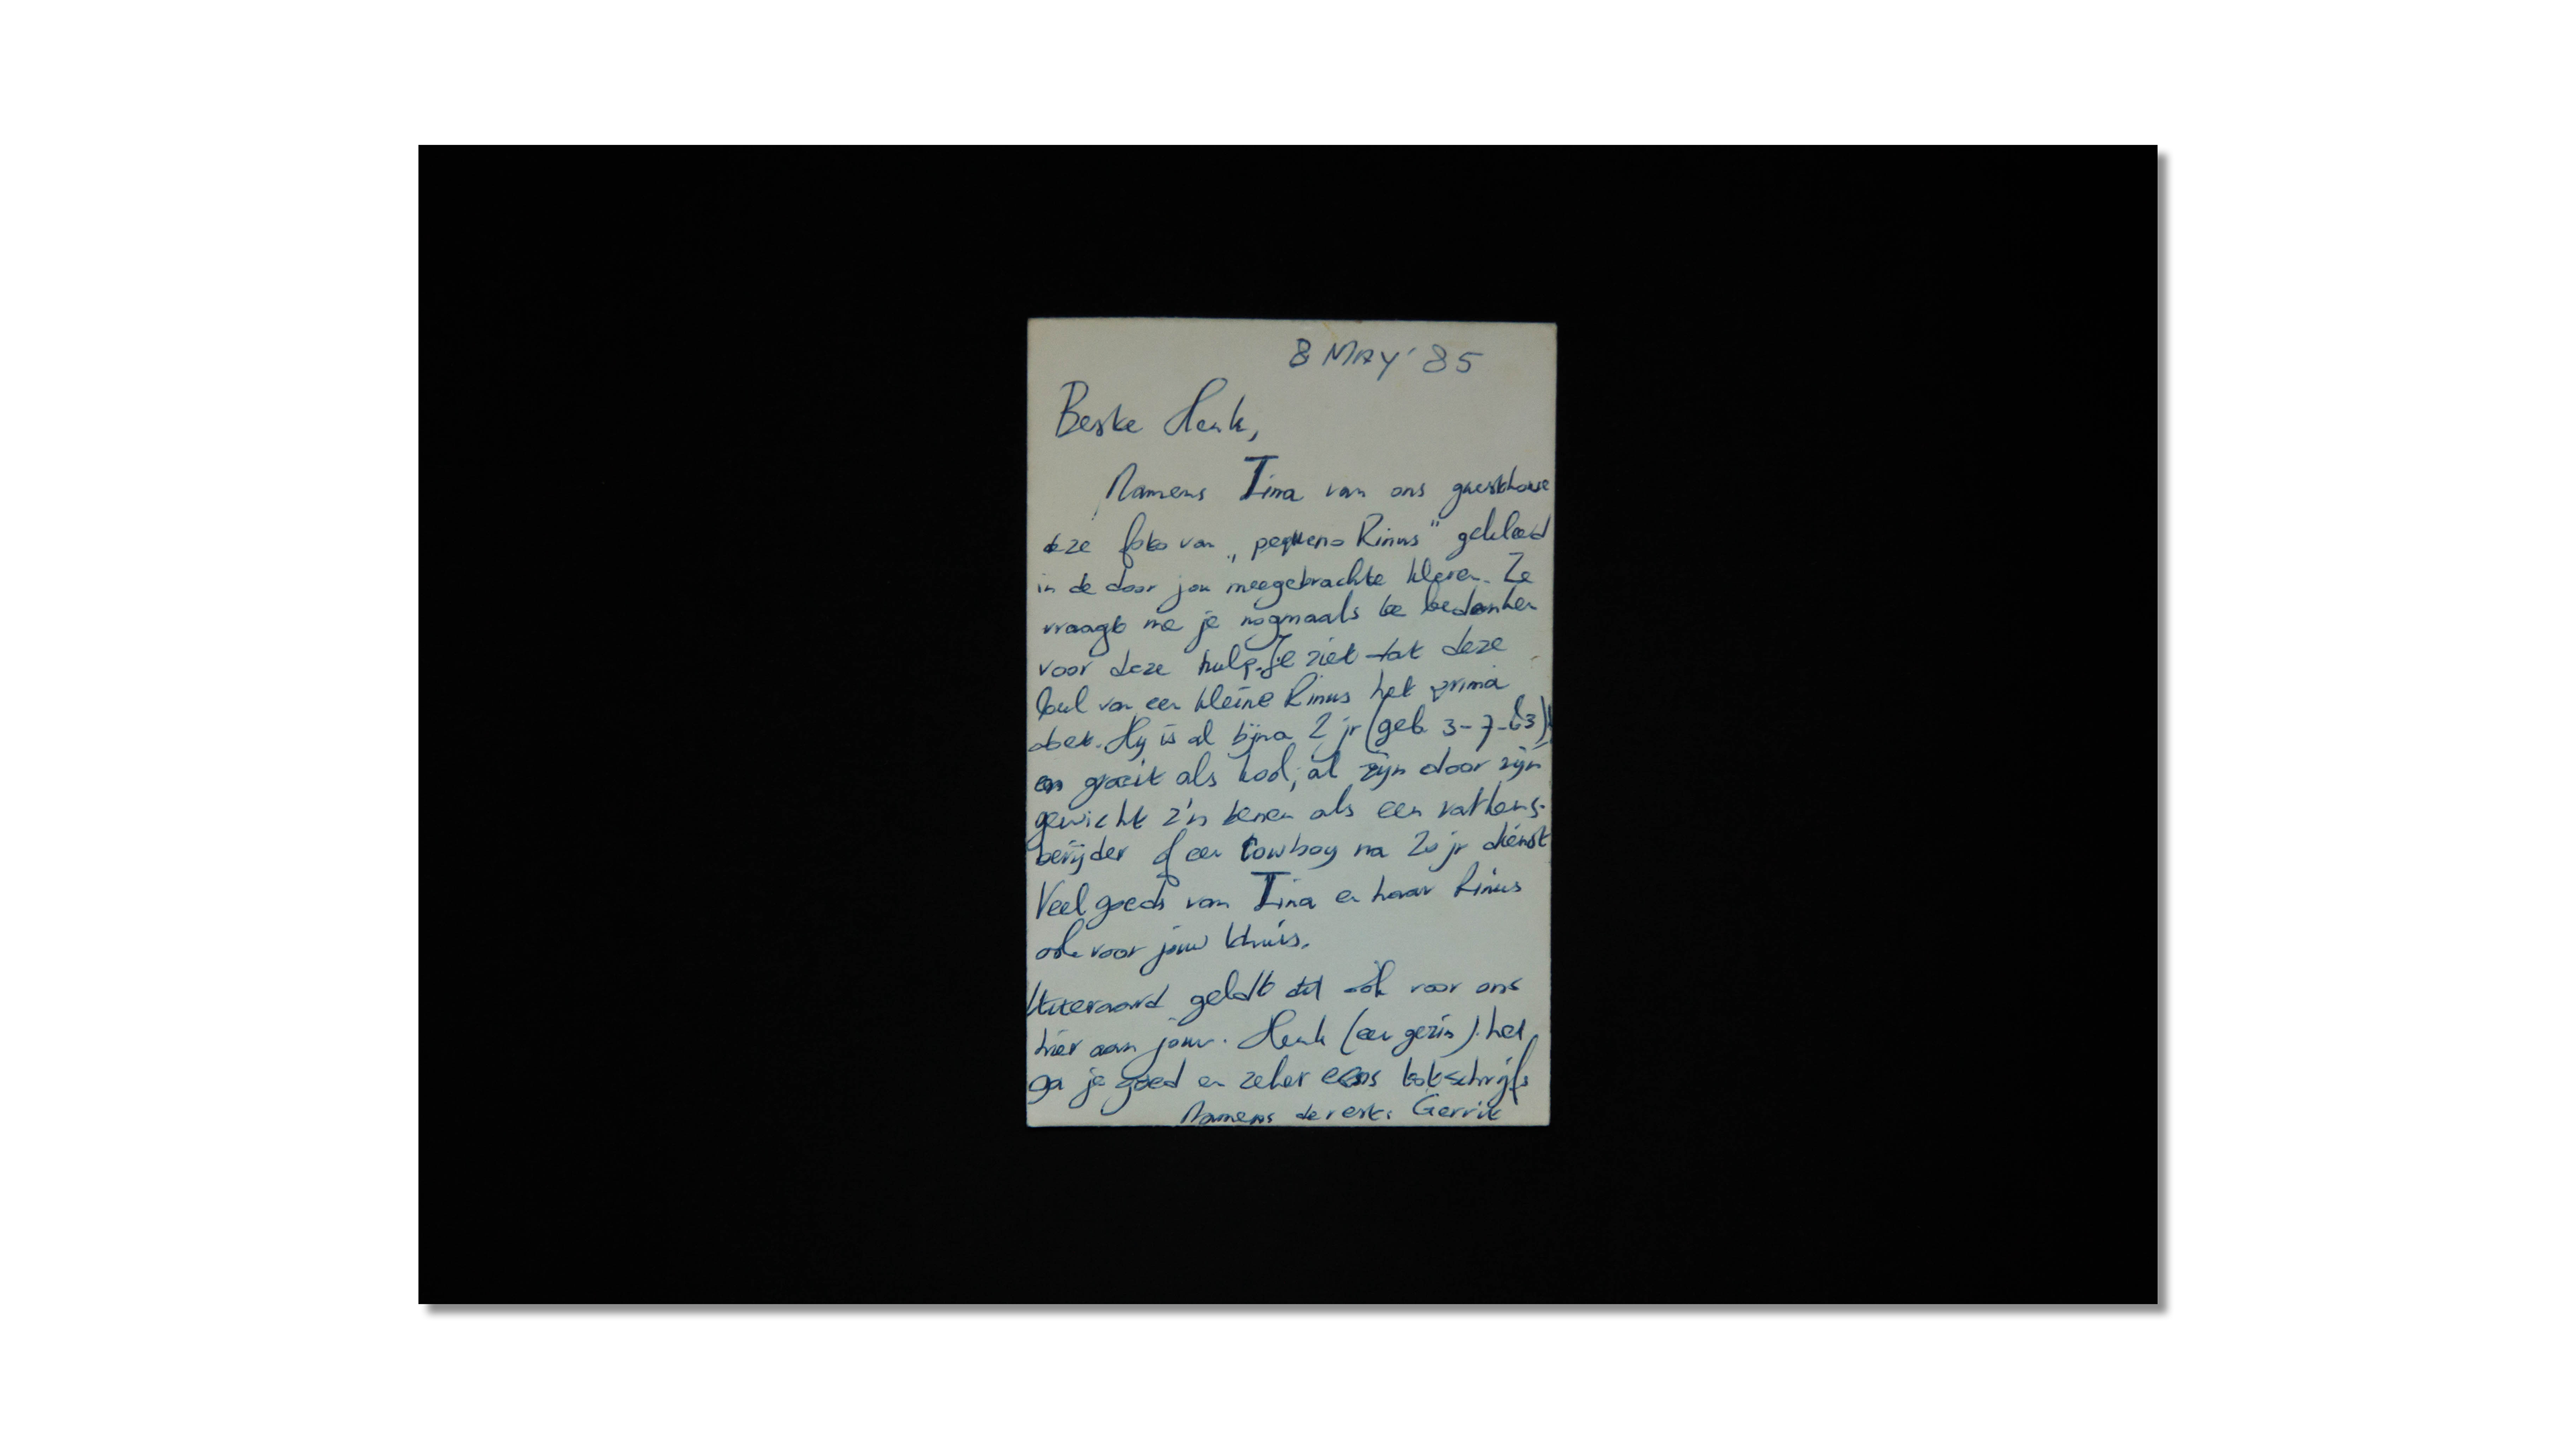 8 MAY '85
Beste Henk,
Namens Tina van ons guesthouse
deze foto van „pequeno Rinus" gekleed
in de door jou meegebrachte kleren. Ze
vraagt me je nogmaals te bedanken
voor deze hulp. Je ziet dat deze
van een kleine Rinus het prima
doet. Hij is al bijna 2 jr (geb. 3-7-83)!
en groeit als kool, al zijn door zijn
gewicht z'n benen als een varkens-
berijder of een cowboy na 20 jr dienst
Veel goeds van Tina en haar Rinus
ook voor jouw thuis.
Uiteraard geldt dit ook voor ons
hier aan jouw. Henk (en gezin). het
ga je goed en zeker eens tot schrijfs
Namens de rest: Gerrit